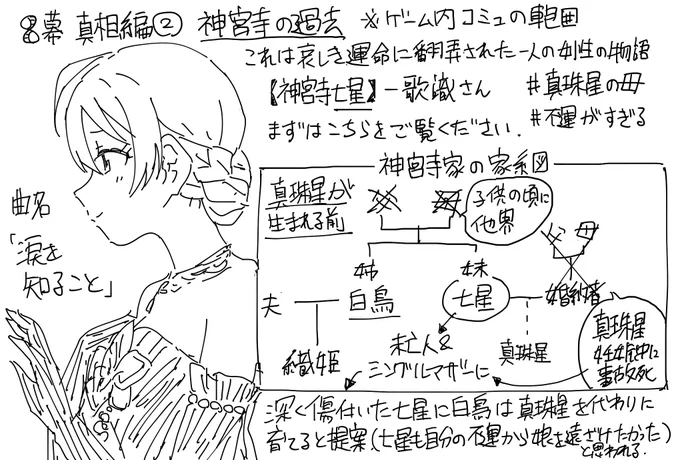 8幕 真相編② 神宮寺の過去 ※ゲーム内コミュの範囲
これは哀しき運命に翻弄された一人の女性の物語
【神宮寺七星】-歌織さん #真珠星の母
まずはこちらをご覧ください. #不運がすぎる
曲名
「涙を
知ること」
神宮寺家の家系図
真珠星が
生まれる前
子供の頃に
他界
父 母
姉 妹
夫 白鳥 七星 婚約者
織姫
未亡人&
シングルマザーに
真珠星
真珠星
妊娠中に
事故死
深く傷付いた七星に白鳥は真珠星を代わりに
育てると提案(七星も自分の不運から娘を遠ざけたかった)
と思われる.